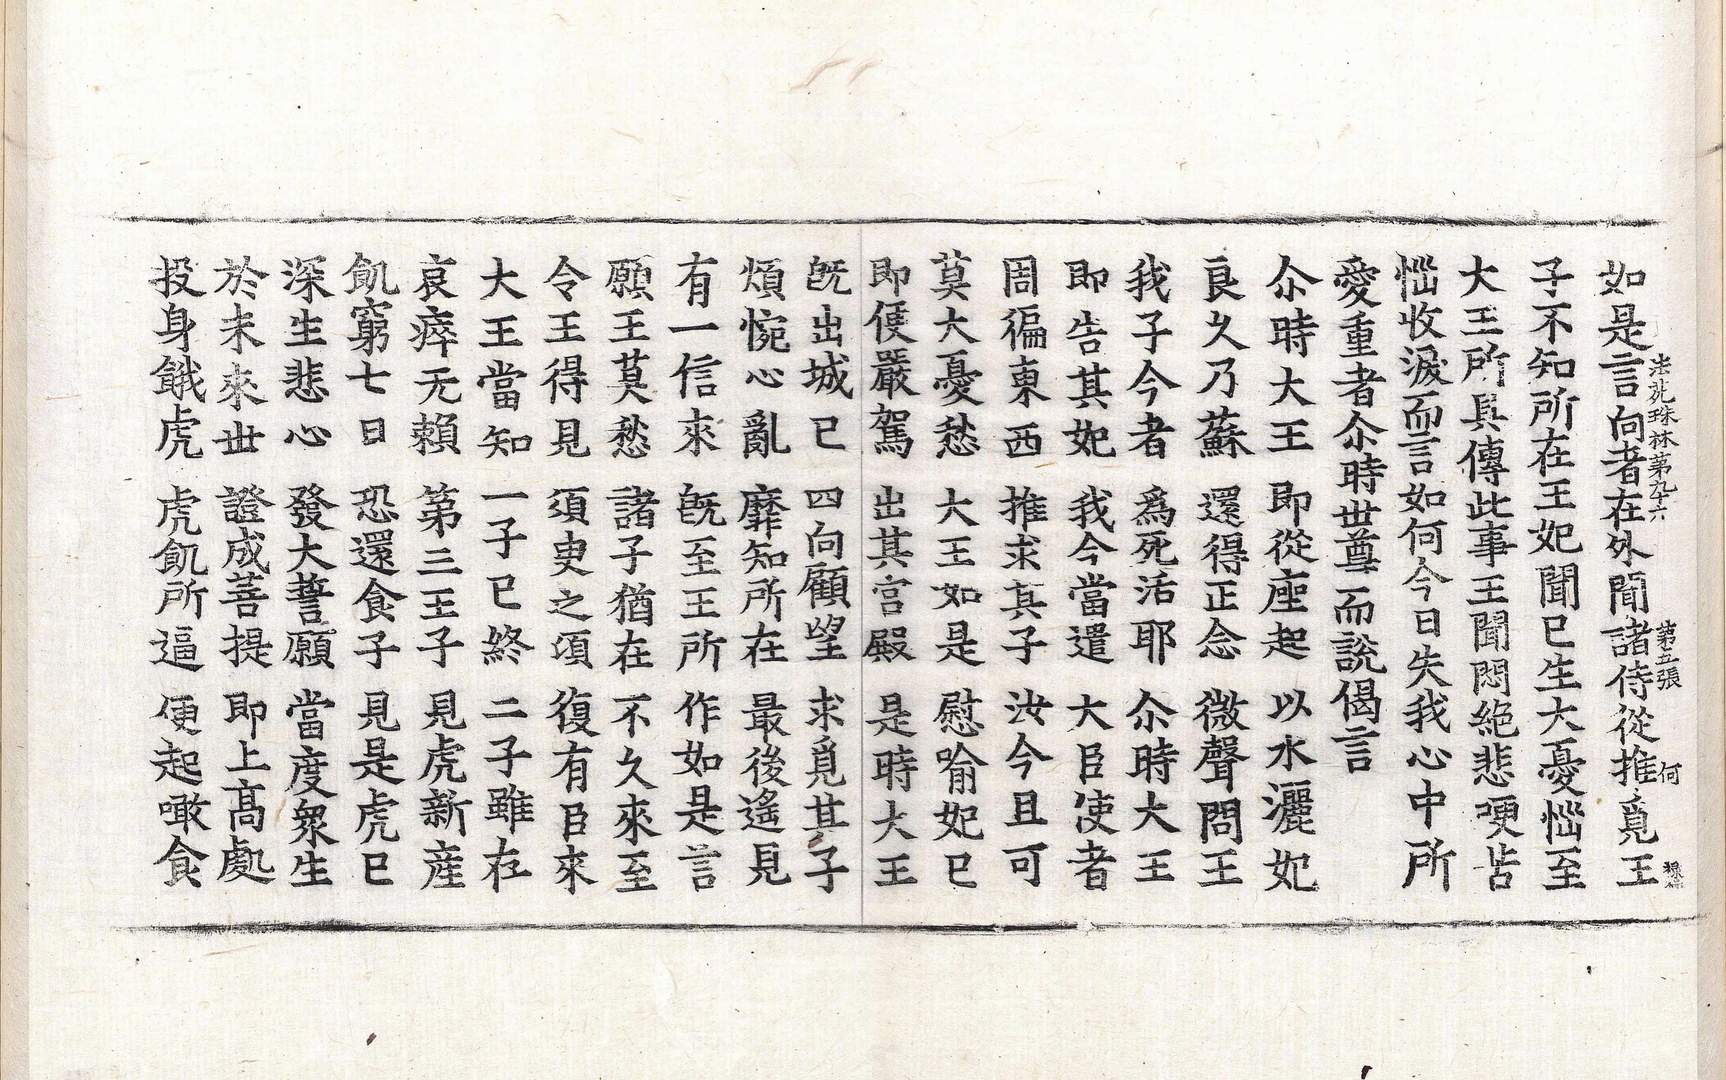 如是言向者在外聞諸侍從推覓王
法苑珠林第九十六 第五張 何
子不知所在王妃聞已生大憂惱至
大王所具傳此事王聞悶絕悲哽苦
惱收淚而言如何今日失我心中所
愛重者尒時世尊而說偈言
尒時大王 即從座起 以水灑妃
良久乃蘇 還得正念 微聲問王
我子今者 爲死活耶 尒時大王
即告其妃 我今當遣 大臣使者
周徧東西 推求其子 汝今且可
莫大憂愁 大王如是 慰喻妃已
即便嚴駕 出其宫殿 是時大王
旣出城已 四向顧望 求覓其子
煩惋心亂 靡知所在 最後遙見
有一信來 旣至王所 作如是言
願王莫愁 諸子猶在 不久來至
令王得見 須臾之頃 復有臣來
大王當知 一子已終 二子雖在
哀瘁无賴 第三王子 見虎新產
飢窮七日 恐還食子 見是虎已
深生悲心 發大誓願 當度衆生
於未來世 證成菩提 即上高處
投身餓虎 虎飢所逼 便起噉食